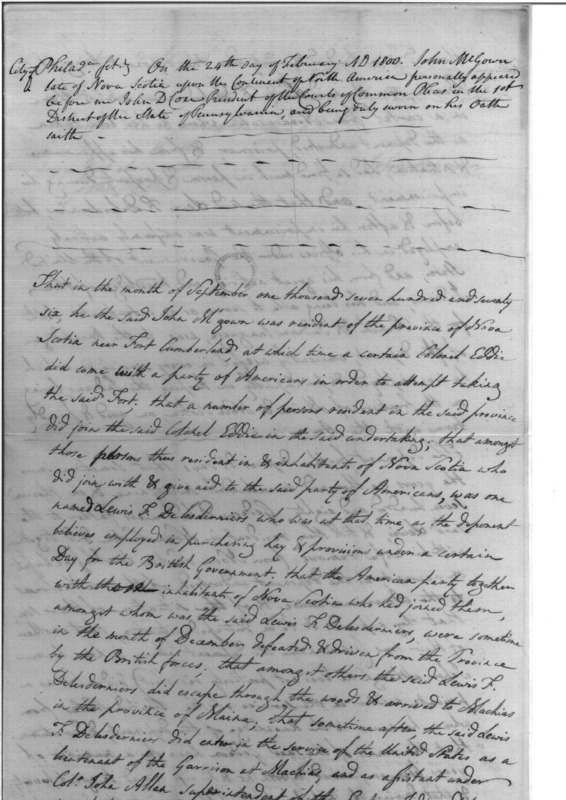 City of Philada. sct. On the 24th day of February AD 1800. John McGown
late of Nova Scotia upon the Continent of North America personally appeared
before me John D Coxe President of the Courts of Common Pleas in the 1st
District of the State of Pennsylvania, and being duly sworn on his Oath
saith –
That in the month of September one thousand seven hundred and seventy
six he the said John McGown was resident of the province of Nova
Scotia near Fort Cumberland at which time a certain Colonel Eddie
did come with a party of Americans in order to attempt taking
the said Fort, that a number of persons resident in the said province
did join the said Colonel Eddie in the said undertaking; that amongst
those persons thus resident in & inhabitants of Nova Scotia who
did join with & give aid to the said party of Americans, was one
named Lewis F. Delesderniers who was at that time, as the deponent
believes, employed in purchasing hay & provisions under a certain
Day for the British Government. that the American party together
with the inhabitants of Nova Scotia who had joined them,
amongst whom was the said Lewis F. Delesderniers, were sometime
in the month of December defeated & driven from the Province
by the British forces, that amongst others the said Lewis F.
Delesderniers did escape through the woods & arrived to Machias
in the province of Maine; that sometime after, the said Lewis
F. Delesdernier did enter in the service of the United States as a
lieutenant of the Garrison at Machias, and as assistant under
Col. John Allan Superintendent of the